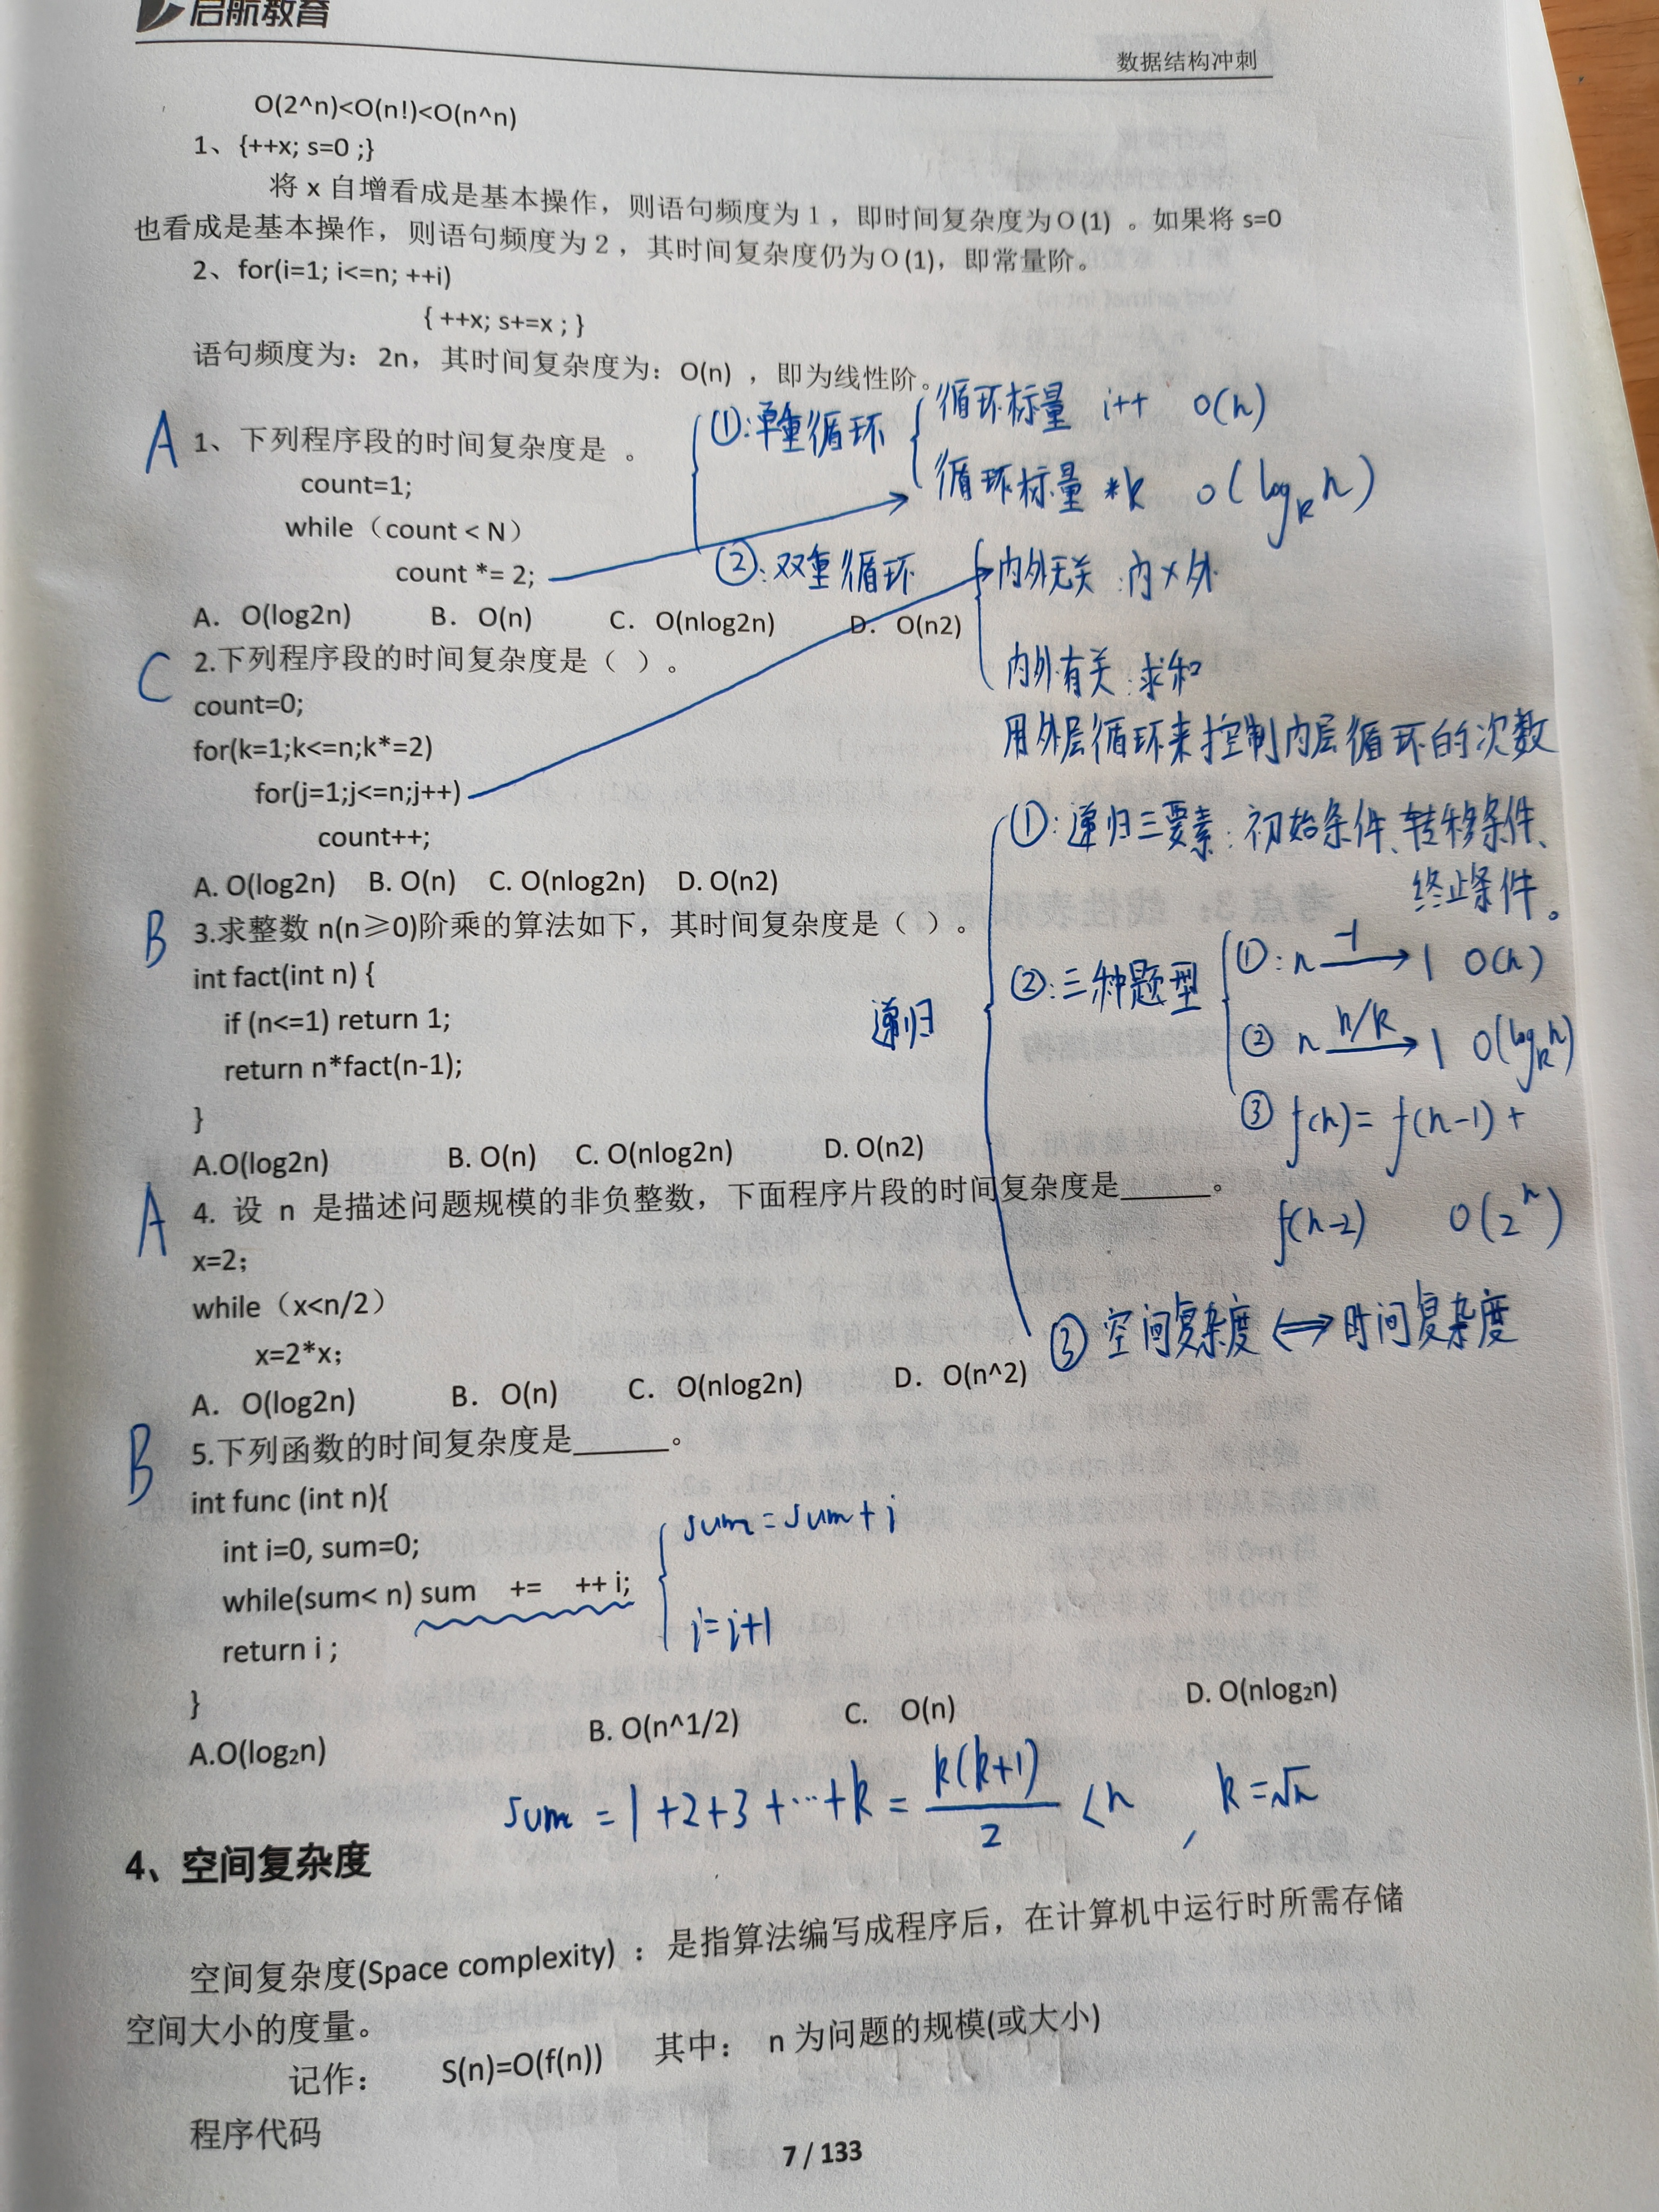 启航教育
数据结构冲刺
O(2^n)<O(n!)<O(n^n)
1、{++x; s=0 ;}
将 x 自增看成是基本操作，则语句频度为1，即时间复杂度为O(1) 。如果将 s=0
也看成是基本操作，则语句频度为2，其时间复杂度仍为O(1)，即常量阶。
2、for(i=1; i<=n; ++i)
{ ++x; s+=x ; }
语句频度为：2n，其时间复杂度为：O(n) ，即为线性阶。
①:单重循环
循环标量 i++ O(n)
循环标量 *k O(log_k n)
②:双重循环
内外无关:内×外
内外有关:求和
用外层循环来控制内层循环的次数
A
1、下列程序段的时间复杂度是 。
count=1;
while（count < N）
count *= 2;
A．O(log2n) B．O(n) C．O(nlog2n) D．O(n2)
C
2.下列程序段的时间复杂度是（ ）。
count=0;
for(k=1;k<=n;k*=2)
for(j=1;j<=n;j++)
count++;
A. O(log2n) B. O(n) C. O(nlog2n) D. O(n2)
B
3.求整数 n(n≥0)阶乘的算法如下，其时间复杂度是（ ）。
int fact(int n) {
if (n<=1) return 1;
return n*fact(n-1);
}
A.O(log2n) B. O(n) C. O(nlog2n) D. O(n2)
递归
①:递归三要素:初始条件、转移条件、
终止条件。
②:三种题型
①: n -1→ 1 O(n)
② n n/k→ 1 O(log_k n)
③ f(n)= f(n-1)+
f(n-2) O(2^n)
③ 空间复杂度 ⟺ 时间复杂度
A
4. 设 n 是描述问题规模的非负整数，下面程序片段的时间复杂度是______。
x=2；
while（x<n/2）
x=2*x；
A．O(log2n) B．O(n) C．O(nlog2n) D．O(n^2)
B
5.下列函数的时间复杂度是______。
int func (int n){
int i=0, sum=0;
while(sum< n) sum += ++ i;
return i ;
}
sum=sum+i
i=i+1
A.O(log₂n) B. O(n^1/2) C. O(n) D. O(nlog₂n)
sum = 1+2+3+…+k = k(k+1)/2 <n , k=√n
4、空间复杂度
空间复杂度(Space complexity) ：是指算法编写成程序后，在计算机中运行时所需存储
空间大小的度量。
记作： S(n)=O(f(n)) 其中： n 为问题的规模(或大小)
程序代码
7 / 133